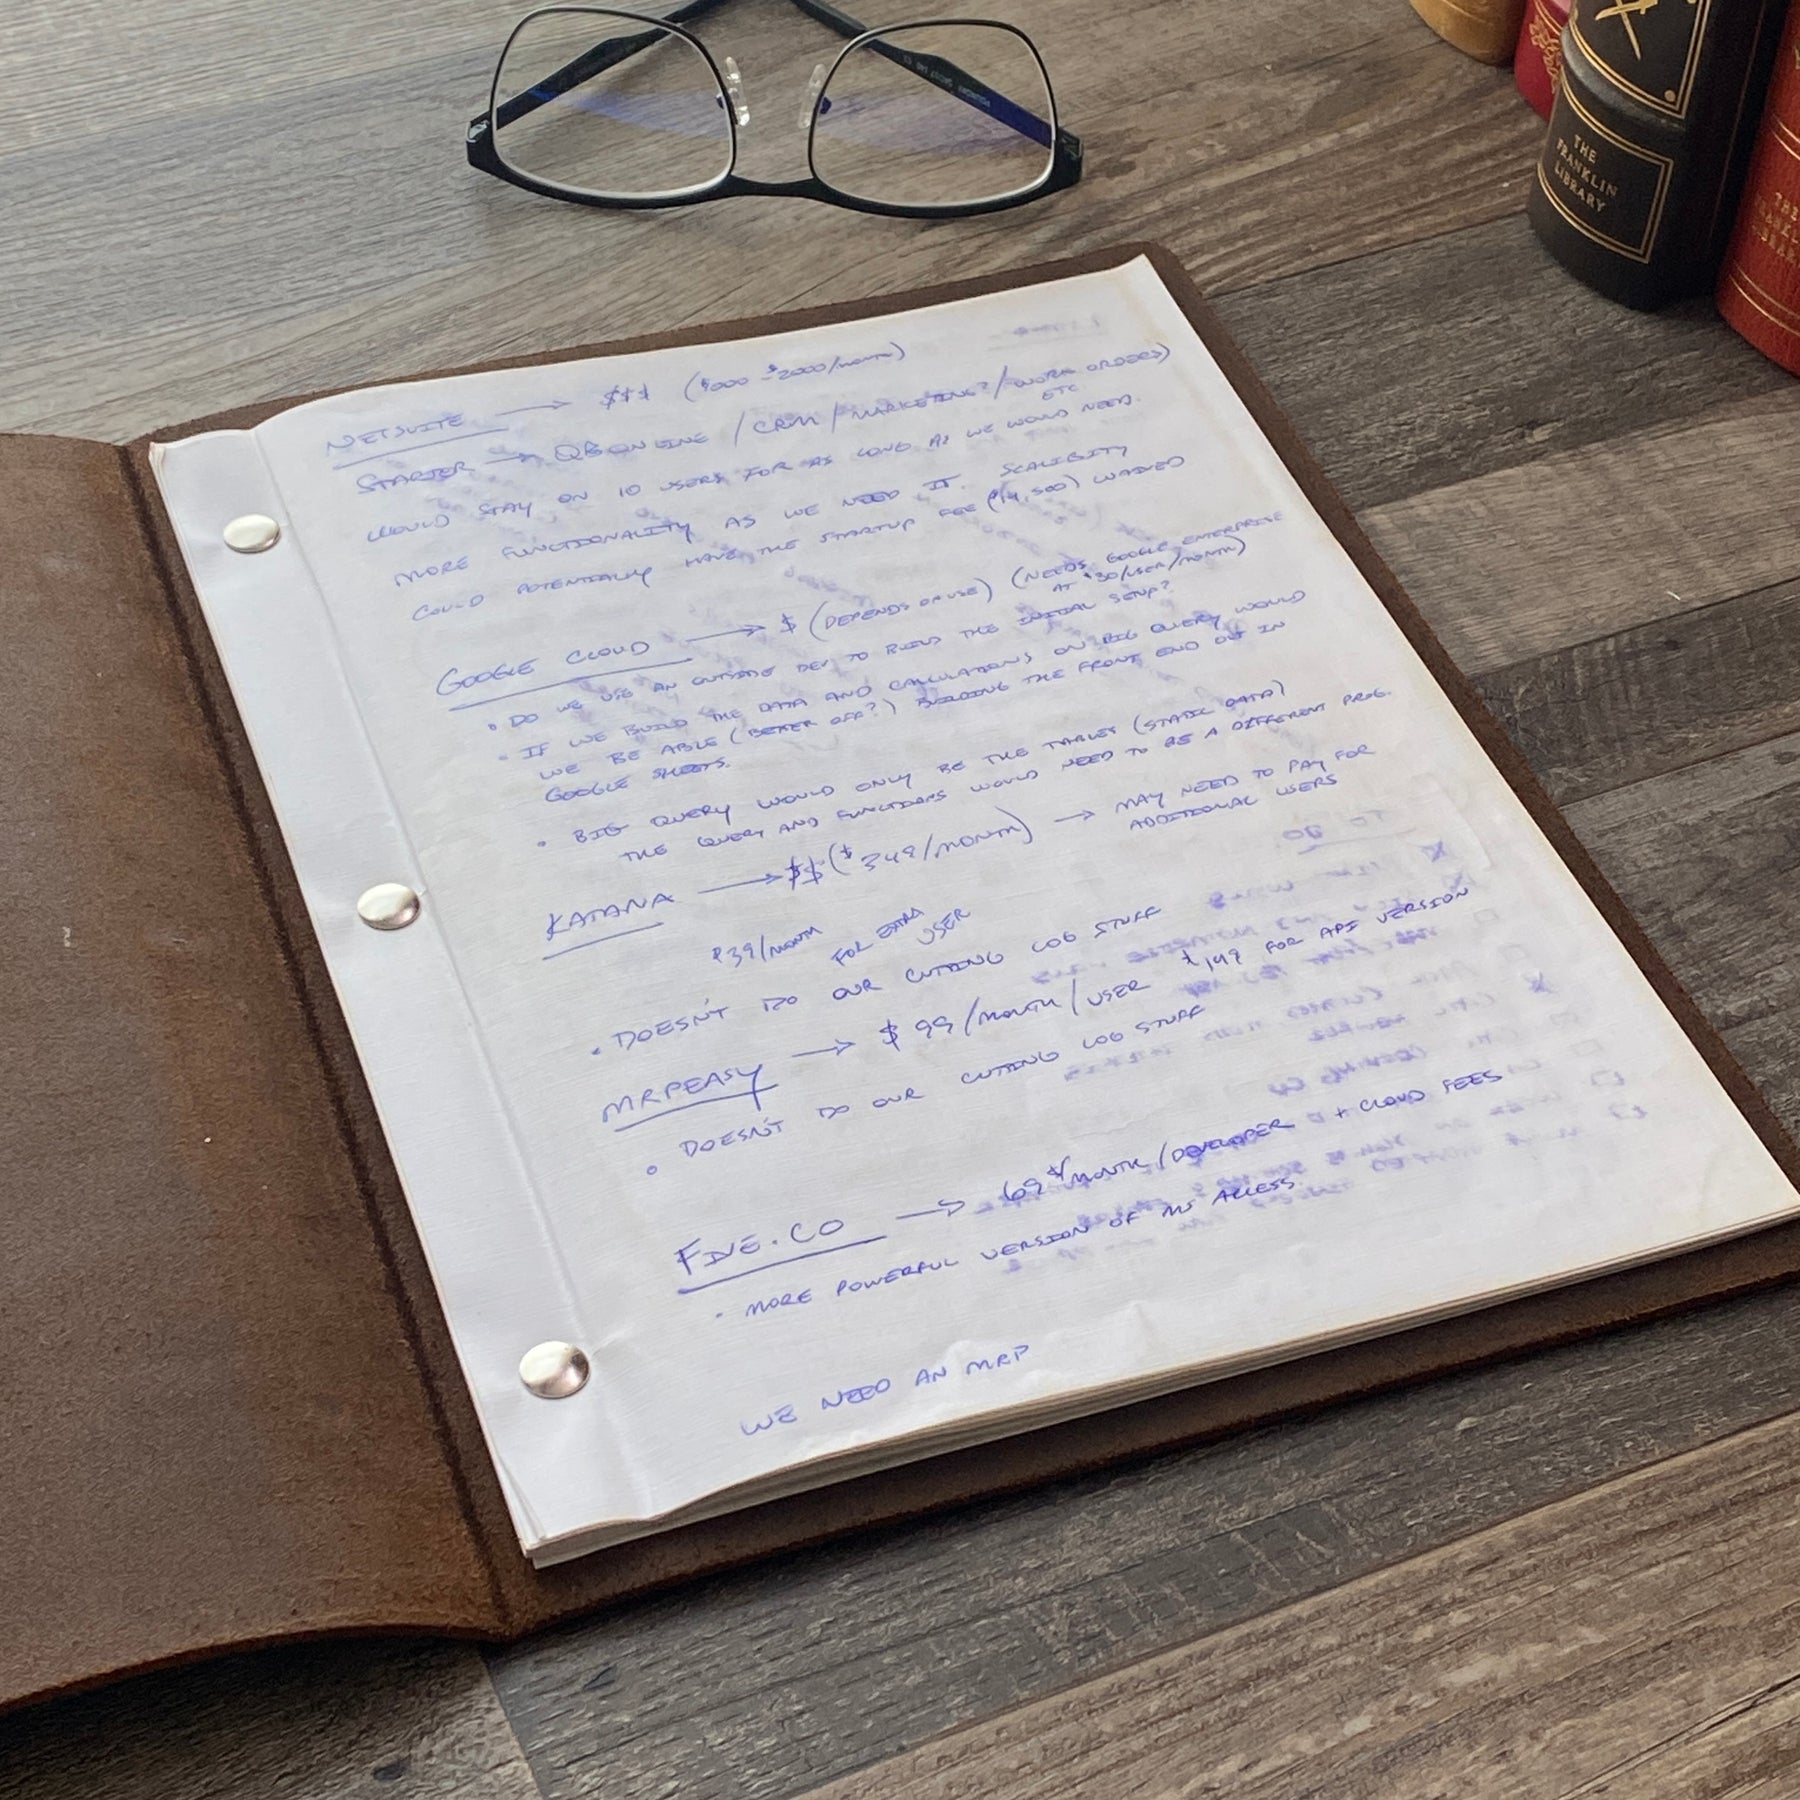 THE
FRANKLIN
LIBRARY
THE
FRANKLIN
LIBRARY
NETSUITE → $$$ ($1000 - $2000/MONTH)
STARTER → QB ONLINE / CRM / MARKETING? / WORK ORDERS)
ETC
WOULD STAY ON 10 USERS FOR AS LONG AS WE WOULD NEED.
MORE FUNCTIONALITY AS WE NEED IT. SCALIBITY
COULD POTENTIALLY HAVE THE STARTUP FEE ($14,500) WAIVED
GOOGLE CLOUD → $ (DEPENDS ON USE) (NEEDS GOOGLE ENTERPRISE
AT $30/USER/MONTH)
• DO WE USE AN OUTSIDE DEV TO BUILD THE INITIAL SETUP?
• IF WE BUILD THE DATA AND CALCULATIONS ON BIG QUERY WOULD
WE BE ABLE (BETTER OFF?) BUILDING THE FRONT END OUT IN
GOOGLE SHEETS.
• BIG QUERY WOULD ONLY BE THE TABLES (STATIC DATA)
THE QUERY AND FUNCTIONS WOULD NEED TO BE A DIFFERENT PROG.
KATANA → $$ ($349/MONTH) → MAY NEED TO PAY FOR
ADDITIONAL USERS
$39/MONTH FOR EXTRA
USER
• DOESN'T DO OUR CUTTING LOG STUFF
MRPEASY → $99/MONTH/USER $149 FOR API VERSION
• DOESN'T DO OUR CUTTING LOG STUFF
FIVE.CO → 69$/MONTH/DEVELOPER + CLOUD FEES
• MORE POWERFUL VERSION OF MS ACCESS
WE NEED AN MRP